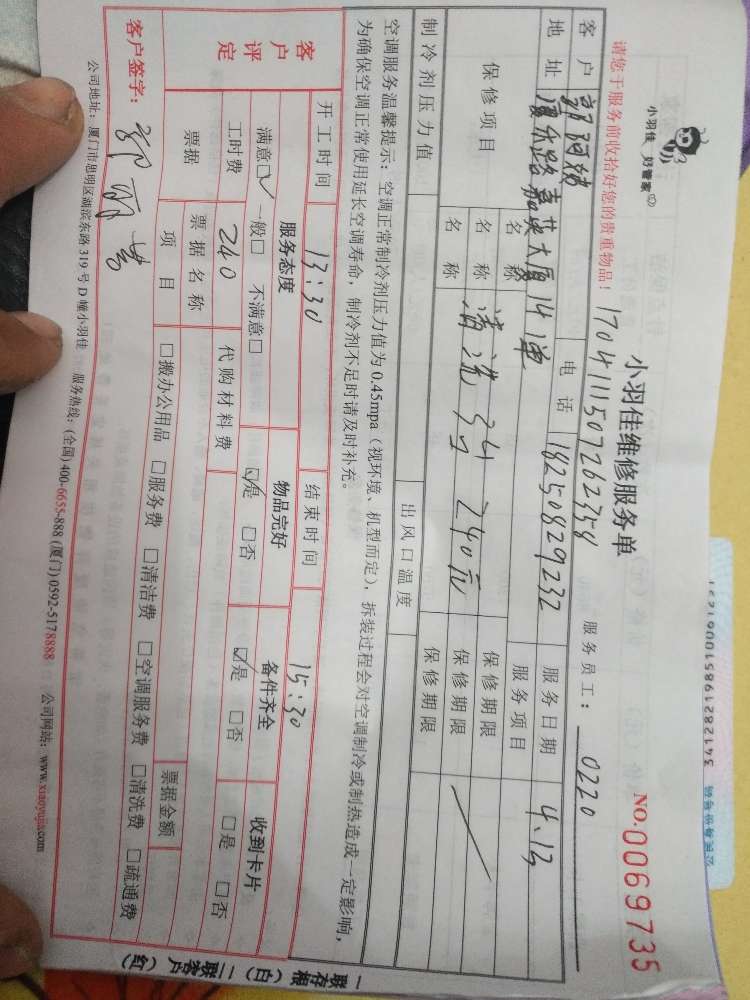 小羽佳
好管家
小羽佳维修服务单
NO.0069735
请您于服务前收拾好您的贵重物品！
1704111507262358
服务员工：0220
客户 郭阿姨 电话 18250829232 服务日期 4.13
地址 厦禾路嘉英大厦141单 服务项目
保修项目 名称 保修期限
名称 清洗3台 240元 保修期限
名称 保修期限
制冷剂压力值 出风口温度
空调服务温馨提示：空调正常制冷剂压力值为0.45mpa（视环境、机型而定），拆装过程会对空调制冷或制热造成一定影响，
为确保空调正常使用延长空调寿命，制冷剂不足时请及时补充。
开工时间 13:30 结束时间 15:30
客户评定 服务态度 物品完好 备件齐全 收到卡片
满意☑ 一般□ 不满意□ ☑是 □否 ☑是 □否 □是 □否
工时费 240 代购材料费
票据 票据名称 票据金额
项目 □搬办公用品 □服务费 □清洁费 □空调服务费 □清洗费 □疏通费
客户签字：
公司地址：厦门市思明区湖滨东路319号D幢小羽佳 服务热线：(全国)400-6655-888 (厦门)0592-5178888 公司网站：www.xiaoyujia.com
一联存根（白）二联客户（红）
公民身份号码 341282198510061621